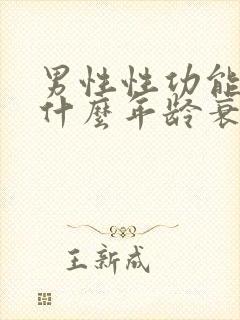 男性性功能
什麼年龄衰
王新成